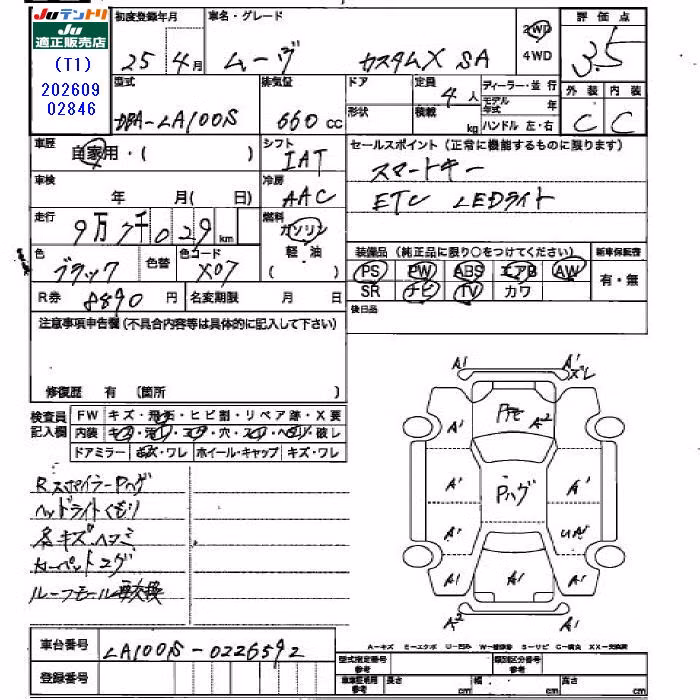 Juテントリ
Ju
適正販売店
(T1)
202609
02846
初度登録年月
25年4月
車名・グレード
ムーヴ カスタムX SA
2WD
4WD
評価点
3.5
型式
DBA-LA100S
排気量
660cc
ドア
形状
定員
4人
積載
kg
ディーラー・並行
モデル年式 年
ハンドル 左・右
外装 内装
C C
車歴
自家用・( )
シフト
IAT
セールスポイント(正常に機能するものに限ります)
スマートキー
ETC LEDライト
車検
年 月( 日)
冷房
AAC
走行
9万7千029km
燃料
ガソリン
軽・油
( )
色
ブラック
色替
色コード
X07
装備品(純正品に限り○をつけてください)
新車保証書
PS PW ABS エアB AW
SR ナビ TV カワ
有・無
R券 8890円
名変期限 月 日
後日品
注意事項申告欄(不具合内容等は具体的に記入して下さい)
修復歴 有 (箇所 )
検査員
記入欄
FW キズ・飛石・ヒビ割・リペア跡・X要
内装 キズ・汚レ・コゲ・穴・スレ・ヘタリ・破レ
ドアミラー キズ・ワレ ホイール・キャップ キズ・ワレ
Rスポイラー Pハゲ
ヘッドライトくもり
各キズヘコミ
カーペットコゲ
ルーフモール要交換
A1 A1 ズレ
A2
A1 A1
A1 Pハゲ A1
A1
A1 A1 A1
A2 A1
車台番号
LA100S-0226592
登録番号
A-キズ E-エクボ U-凹み W-補修跡 S-サビ C-腐食 XX-交換済
型式指定番号
参考
類別区分番号
参考
車体証明用
参考
長さ cm 幅 cm 高さ cm